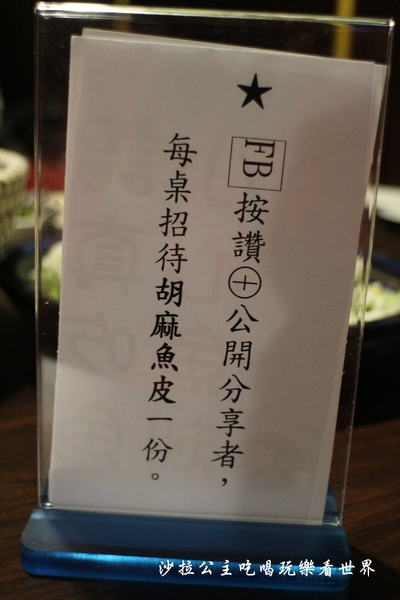 ★FB按讚⊕公開分享者，
每桌招待胡麻魚皮一份。
沙拉公主吃喝玩樂看世界